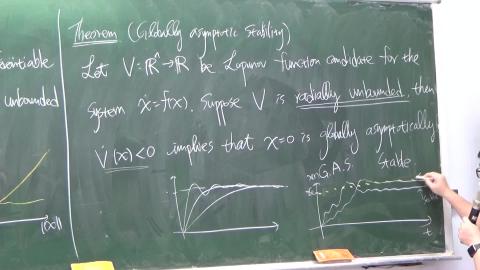 Theorem (Globally asymptotic Stability)
Let V: ℝⁿ→ℝ be Lapunov function candidate for the
system ẋ=f(x). Suppose V is radially unbounded, then
V̇(x)<0 implies that x=0 is globally asymptotically
G.A.S. Stable
unbounded
||x||
t